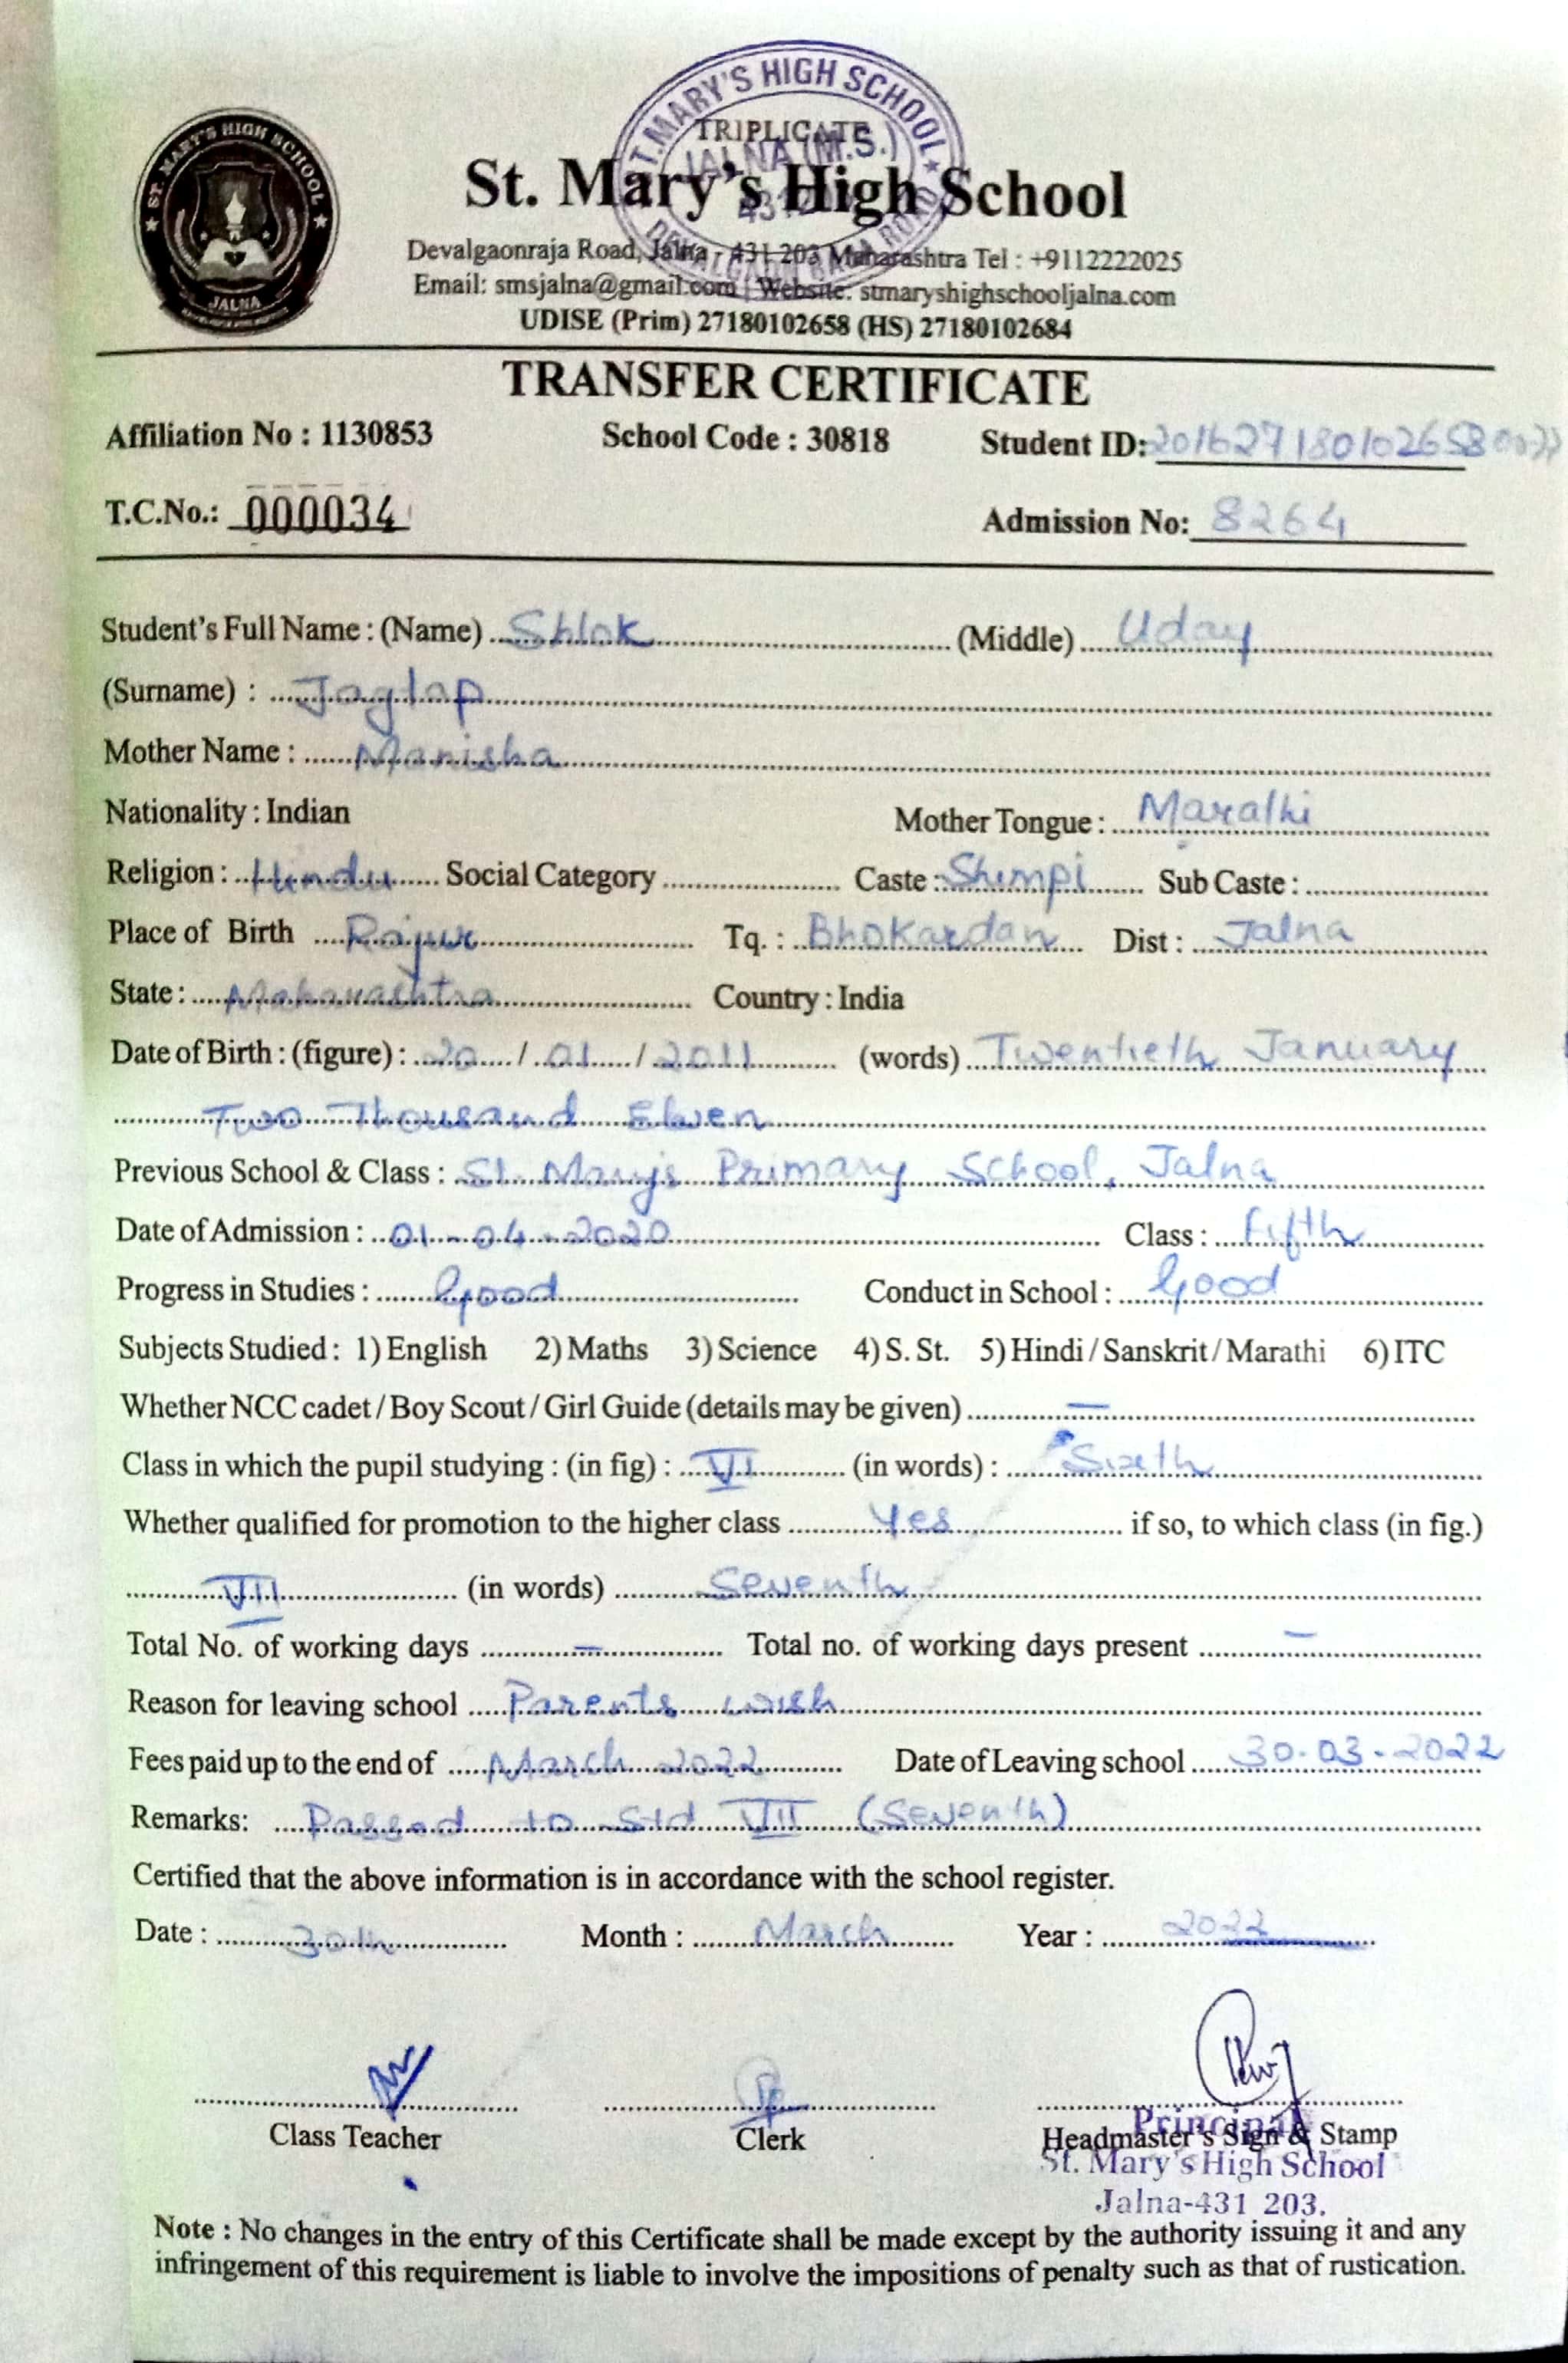 ST. MARY'S HIGH SCHOOL
JALNA
ST. MARY'S HIGH SCHOOL
JALNA (M.S.)
TRIPLICATE
St. Mary's High School
Devalgaonraja Road, Jalna - 431 203 Maharashtra Tel : +9112222025
Email: smsjalna@gmail.com | Website: stmaryshighschooljalna.com
UDISE (Prim) 27180102658 (HS) 27180102684
TRANSFER CERTIFICATE
Affiliation No : 1130853 School Code : 30818 Student ID:
T.C.No.: 000034 Admission No: 8264
Student's Full Name : (Name) Shlok (Middle) Uday
(Surname) : Jagtap
Mother Name : Manisha
Nationality : Indian Mother Tongue : Marathi
Religion : Hindu Social Category Caste : Shimpi Sub Caste :
Place of Birth Rajur Tq. : Bhokardan Dist : Jalna
State : Maharashtra Country : India
Date of Birth : (figure) : 20 / 01 / 2011 (words) Twentieth January
Two Thousand Eleven
Previous School & Class : St. Mary's Primary School, Jalna
Date of Admission : 01-04-2020 Class : Fifth
Progress in Studies : Good Conduct in School : Good
Subjects Studied : 1) English 2) Maths 3) Science 4) S. St. 5) Hindi / Sanskrit / Marathi 6) ITC
Whether NCC cadet / Boy Scout / Girl Guide (details may be given) —
Class in which the pupil studying : (in fig) : VI (in words) : Sixth
Whether qualified for promotion to the higher class Yes if so, to which class (in fig.)
VII (in words) Seventh
Total No. of working days — Total no. of working days present —
Reason for leaving school Parents wish
Fees paid up to the end of March 2022 Date of Leaving school 30-03-2022
Remarks: Passed to Std VII (Seventh)
Certified that the above information is in accordance with the school register.
Date : 30th Month : March Year : 2022
Class Teacher Clerk Headmaster's Sign & Stamp
Principal
St. Mary's High School
Jalna-431 203.
Note : No changes in the entry of this Certificate shall be made except by the authority issuing it and any
infringement of this requirement is liable to involve the impositions of penalty such as that of rustication.